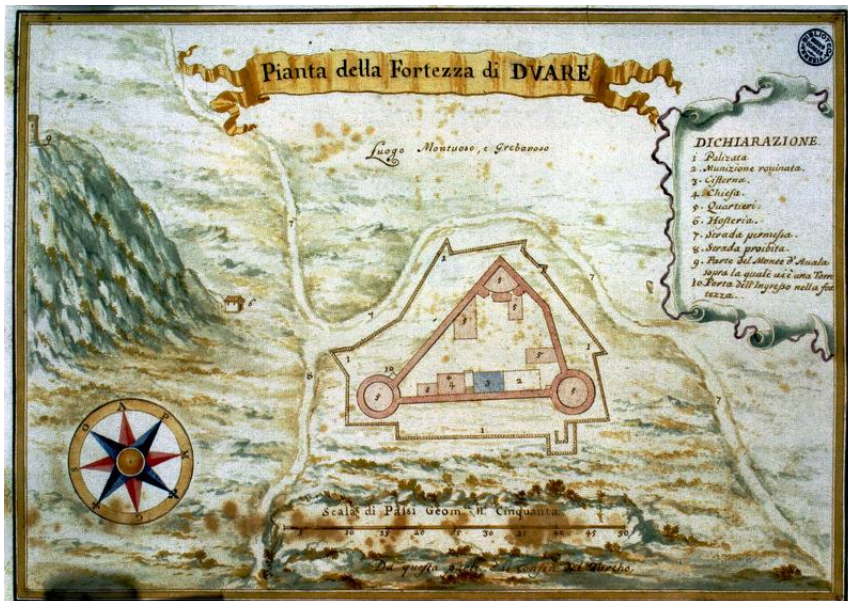 Pianta della Fortezza di DVARE
Luogo Montuoso, e Grebanoso
DICHIARAZIONE.
1 Palizata
2. Munizione rovinata.
3. Cisterna.
4. Chiesa.
5. Quartieri.
6. Hosteria.
7. Strada permessa
8. Strada proibita.
9. Parte del Monte d'Auala
sopra la quale ui è una Torre
10. Porta dell'Ingresso nella for
tezza.
9
7
6
7
7
1
5
3
5
1
1
5
10
8
5
5
4
3
2
5
7
1
S O A P M G
Scala di Passi Geom. n. Cinquanta.
5 10 15 20 25 30 35 40 45 50
Da questa parte